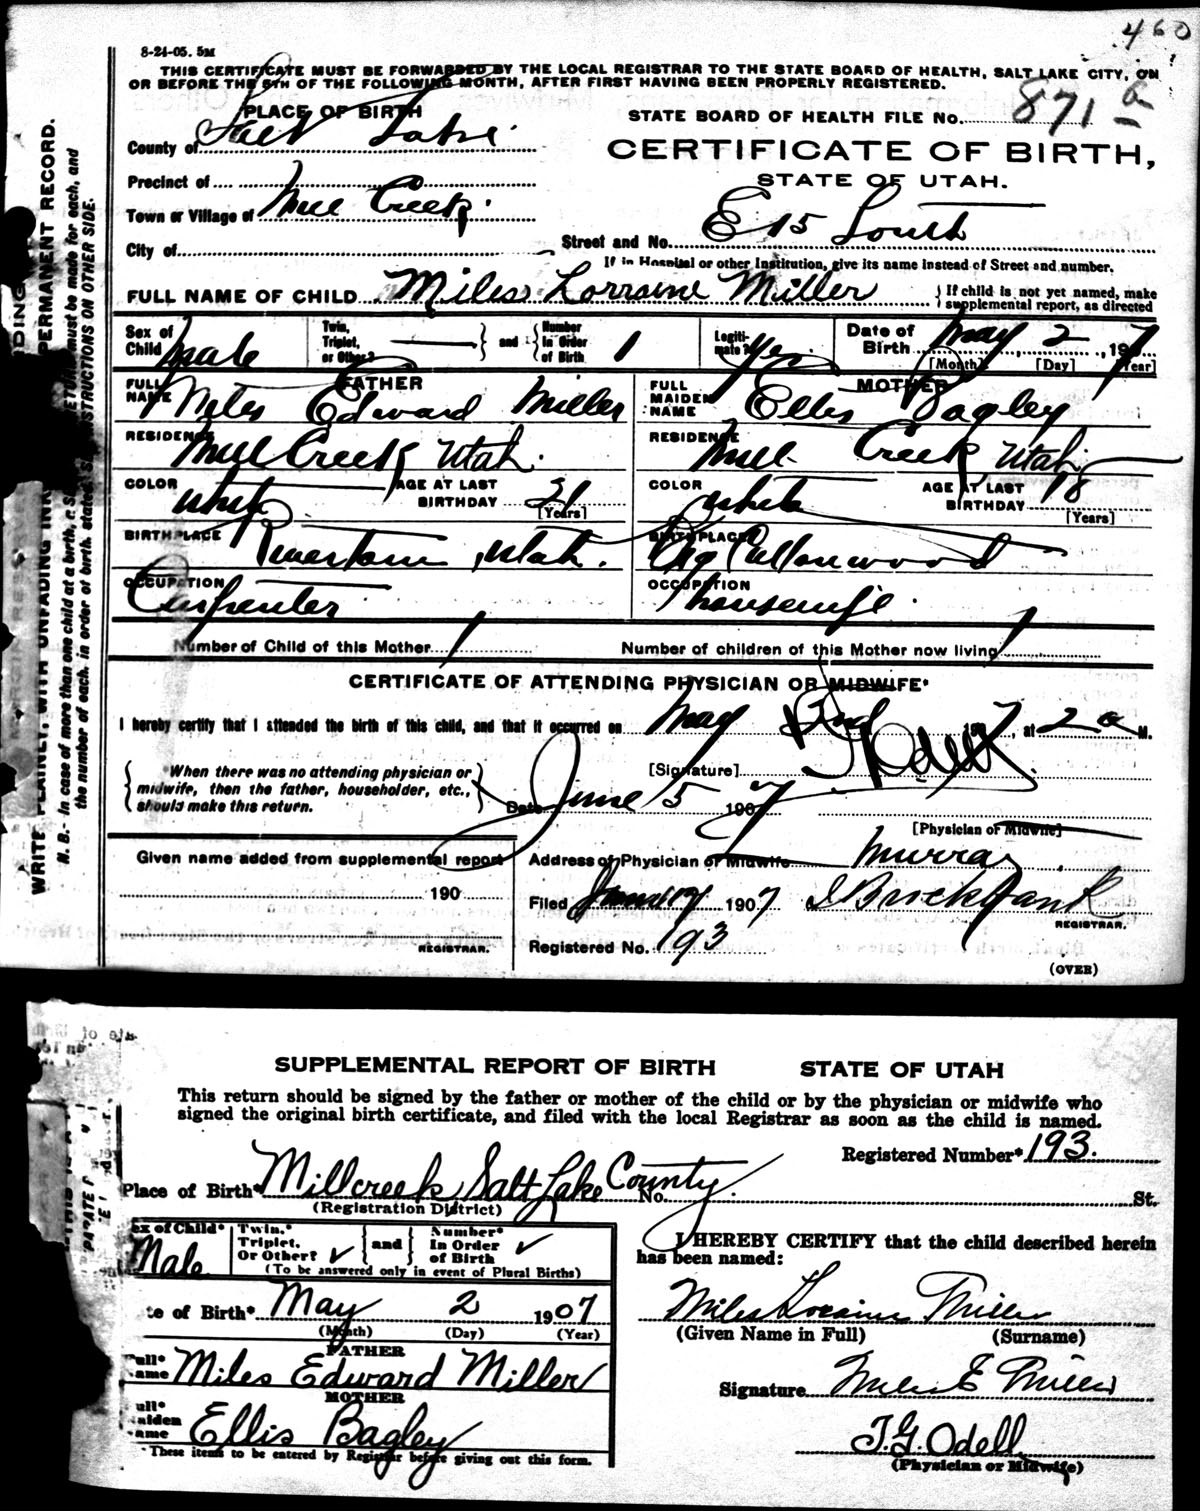 460
8-24-05. 5M
THIS CERTIFICATE MUST BE FORWARDED BY THE LOCAL REGISTRAR TO THE STATE BOARD OF HEALTH, SALT LAKE CITY, ON
OR BEFORE THE 5TH OF THE FOLLOWING MONTH, AFTER FIRST HAVING BEEN PROPERLY REGISTERED.
PLACE OF BIRTH
STATE BOARD OF HEALTH FILE No. 871 a
County of Salt Lake
CERTIFICATE OF BIRTH,
STATE OF UTAH.
Precinct of
Town or Village of Mill Creek
City of
Street and No. E 15 South
If in Hospital or other Institution, give its name instead of Street and number.
FULL NAME OF CHILD Miles Lorraine Miller
If child is not yet named, make supplemental report, as directed
Sex of Child Male Twin, Triplet, or Other? and Number In Order of Birth 1 Legitimate? Yes Date of Birth May 2, 1907
[Month] [Day] [Year]
FATHER MOTHER
FULL NAME Miles Edward Miller FULL MAIDEN NAME Ellis Bagley
RESIDENCE Mill Creek Utah. RESIDENCE Mill Creek Utah
COLOR White AGE AT LAST BIRTHDAY 21 [Years] COLOR White AGE AT LAST BIRTHDAY 18 [Years]
BIRTHPLACE Riverton, Utah. BIRTHPLACE Big Cottonwood
OCCUPATION Carpenter OCCUPATION housewife
Number of Child of this Mother 1 Number of children of this Mother now living 1
CERTIFICATE OF ATTENDING PHYSICIAN OR MIDWIFE*
I hereby certify that I attended the birth of this child, and that it occurred on May 2nd 1907, at 2 a M.
*When there was no attending physician or
midwife, then the father, householder, etc.,
should make this return.
[Signature] T G Odell
Date June 5 1907
[Physician or Midwife]
Given name added from supplemental report
190
REGISTRAR.
Address of Physician or Midwife Murray
Filed June 17 1907 Brockbank
REGISTRAR.
Registered No. 193
(OVER)
WRITE PLAINLY, WITH UNFADING INK PERMANENT RECORD.
N. B.- In case of more than one child at a birth, a SEPARATE RETURN must be made for each, and
the number of each, in order of birth, stated. SEE INSTRUCTIONS ON OTHER SIDE.
SUPPLEMENTAL REPORT OF BIRTH STATE OF UTAH
This return should be signed by the father or mother of the child or by the physician or midwife who
signed the original birth certificate, and filed with the local Registrar as soon as the child is named.
Registered Number* 193.
Place of Birth* Millcreek Salt Lake County. No. St.
(Registration District)
Sex of Child* Male Twin,* Triplet, Or Other? ✓ and Number* In Order of Birth ✓
(To be answered only in event of Plural Births)
I HEREBY CERTIFY that the child described herein
has been named:
te of Birth* May 2 1907
(Month) (Day) (Year)
Miles Loraine Miller
(Given Name in Full) (Surname)
FATHER
ull* ame Miles Edward Miller
Signature Miles E Miller
MOTHER
ull* aiden ame Ellis Bagley
T. G. Odell
(Physician or Midwife)
*These items to be entered by Registrar before giving out this form.